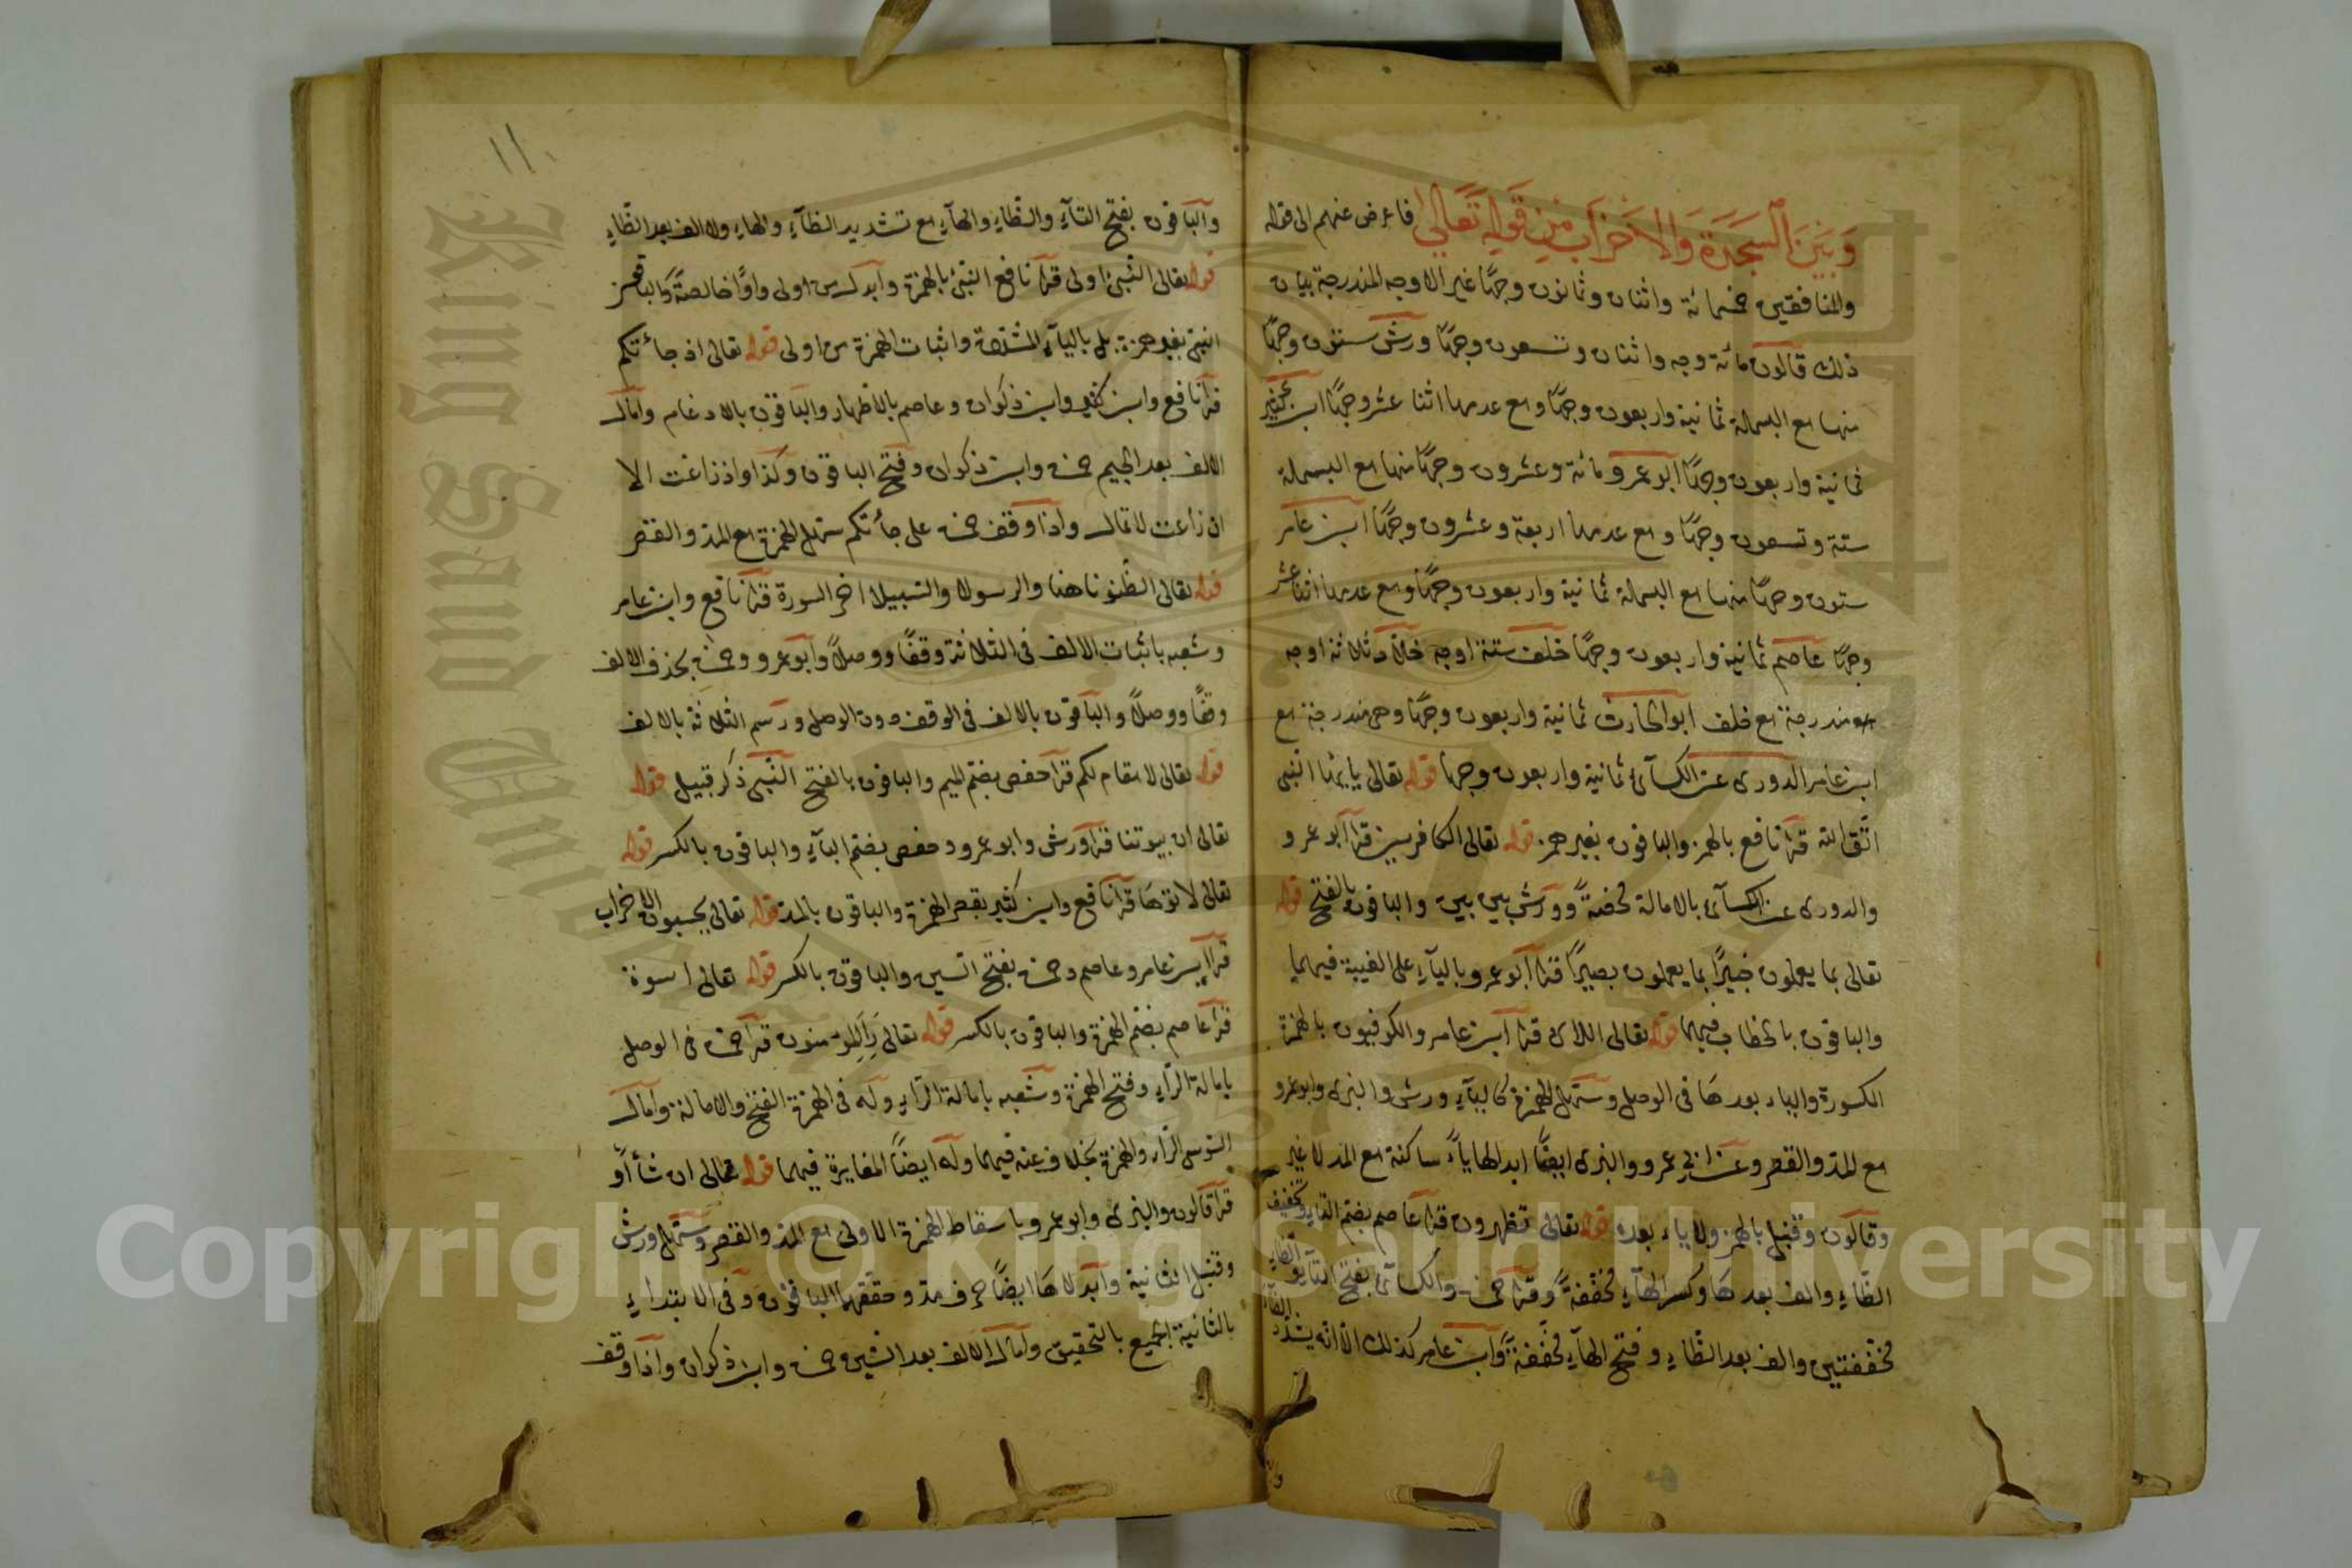 وَبَيْنَ السَّجْدَةِ وَالْأَحْزَابِ مِنْ قَوْلِهِ تَعَالَى فاعرض عنهم الى قوله
والمنافقين خمسمائة واثنان وثمانون وجهًا غير الاوجه المندرجة بيان
ذلك قالون مائة وجه واثنان وتسعون وجهًا ورش ستون وجهًا
منها مع البسملة ثمانية واربعون وجهًا ومع عدمها اثنا عشر وجهًا ابن كثير
ثمانية واربعون وجهًا ابو عمرو مائة وعشرون وجهًا منها مع البسملة
ستة وتسعون وجهًا ومع عدمها اربعة وعشرون وجهًا ابن عامر
ستون وجهًا منها مع البسملة ثمانية واربعون وجهًا ومع عدمها اثنا عشر
وجهًا عاصم ثمانية واربعون وجهًا خلف ستة اوجه خلاد ثلاثة اوجه
مندرجة مع خلف ابو الحارث ثمانية واربعون وجهًا وهى مندرجة مع
ابن عامر الدورى عن الكسآئى ثمانية واربعون وجها قوله تعالى يايها النبى
اتق الله قرا نافع بالهمز والباقون بغير همز قوله تعالى الكافرين قرا ابو عمرو
والدورى عن الكسآئى بالامالة محضةً وورش بين بين والباقون بالفتح قوله
تعالى بما يعملون خبيرًا بما يعملون بصيرًا قرا ابو عمرو باليآءِ على الغيبة فيهما
والباقون بالخطاب فيهما قوله تعالى اللاى قرا ابن عامر والكوفيون بالهمزة
المكسورة والياء بعدها فى الوصل وسهل الهمزة كاليآءِ ورش والبزى وابو عمرو
مع المد والقصر وعن ابى عمرو والبزى ايضًا ابدالها ياءً ساكنة مع المد لا غير
وقالون وقنبل بالهمز ولا ياء بعده قوله تعالى تظهرون قرا عاصم بضم التاء وتخفيف
الظاءِ والف بعدها وكسر الهآءِ مخففةً وقرا حمزة والكسآئى بفتح التآءِ والظاءِ
مخففتين والف بعد الظاءِ وفتح الهآءِ مخففةً وابن عامر كذلك الا انه يشدد الظاء
١١٠
والباقون بفتح التآءِ والظاءِ والهآءِ مع تشديد الظآءِ والهاءِ ولا الف بعد الظاءِ
قوله تعالى النبىُ اولى قرا نافع النبئ بالهمزة وابدل من اولى واوًا خالصةً والباقون
النبى بغير همزة بل باليآءِ المشددة واثبات الهمزة من اولى قوله تعالى اذ جاءتكم
قرا نافع وابن كثير وابن ذكوان وعاصم بالاظهار والباقون بالادغام وامال
الالف بعد الجيم حمزة وابن ذكوان وفتح الباقون وكذا واذ زاغت الا
ان زاغت لا تمال واذا وقف حمزة على جاءتكم سهل الهمزة مع المد والقصر
قوله تعالى الظنونا هنا والرسولا والسبيلا اخر السورة قرا نافع وابن عامر
وشعبه باثبات الالف فى الثلاثة وقفًا ووصلًا وابو عمرو وحمزة بحذف الالف
وقفًا ووصلًا والباقون بالالف فى الوقف دون الوصل ورسم الثلاثة بالالف
قوله تعالى لا مقام لكم قرا حفص بضم الميم والباقون بالفتح النبى ذكر قبيل قوله
تعالى ان بيوتنا قرا ورش وابو عمرو وحفص بضم البآءِ والباقون بالكسر قوله
تعالى لاتوها قرا نافع وابن كثير بقصر الهمزة والباقون بالمد قوله تعالى يحسبون الاحزاب
قرا ابن عامر وعاصم وحمزة بفتح السين والباقون بالكسر قوله تعالى اسوة
قرا عاصم بضم الهمزة والباقون بالكسر قوله تعالى رأى المؤمنون قرا حمزة فى الوصل
بامالة الراءِ وفتح الهمزة وشعبه بامالة الراءِ وله فى الهمزة الفتح والامالة وامال
السوسى الراء والهمزة بخلاف عنه فيهما وله ايضًا المغايرة فيهما قوله تعالى ان شآء او
قرا قالون والبزى وابو عمرو باسقاط الهمزة الاولى مع المد والقصر وسهل ورش
وقنبل الثانية وابدلاها ايضًا حرف مد وحققهما الباقون وفى الابتداءِ
بالثانية الجميع بالتحقيق وامال الالف بعد الشين حمزة وابن ذكوان واذا وقف
King Saud University
Copyright © King Saud University